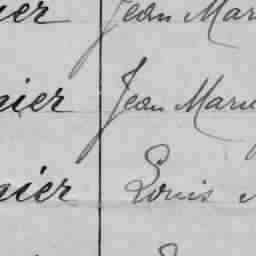 ier Jean Mar
nier Jean Marie
nier Louis